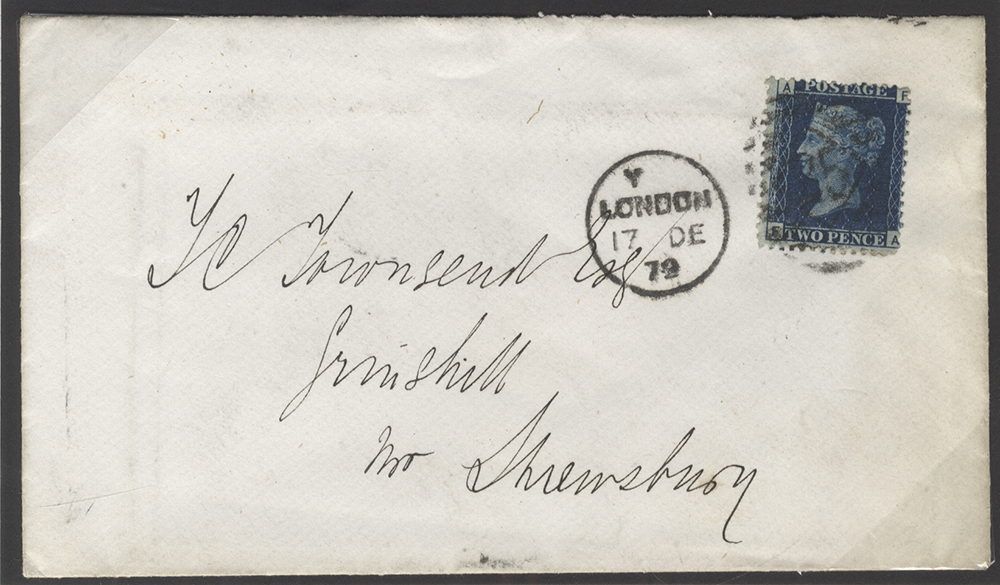 A POSTAGE F
E TWO PENCE A
Y
LONDON
17 DE
79
T C Townsend Esq
Grinshill
Nr Shrewsbury